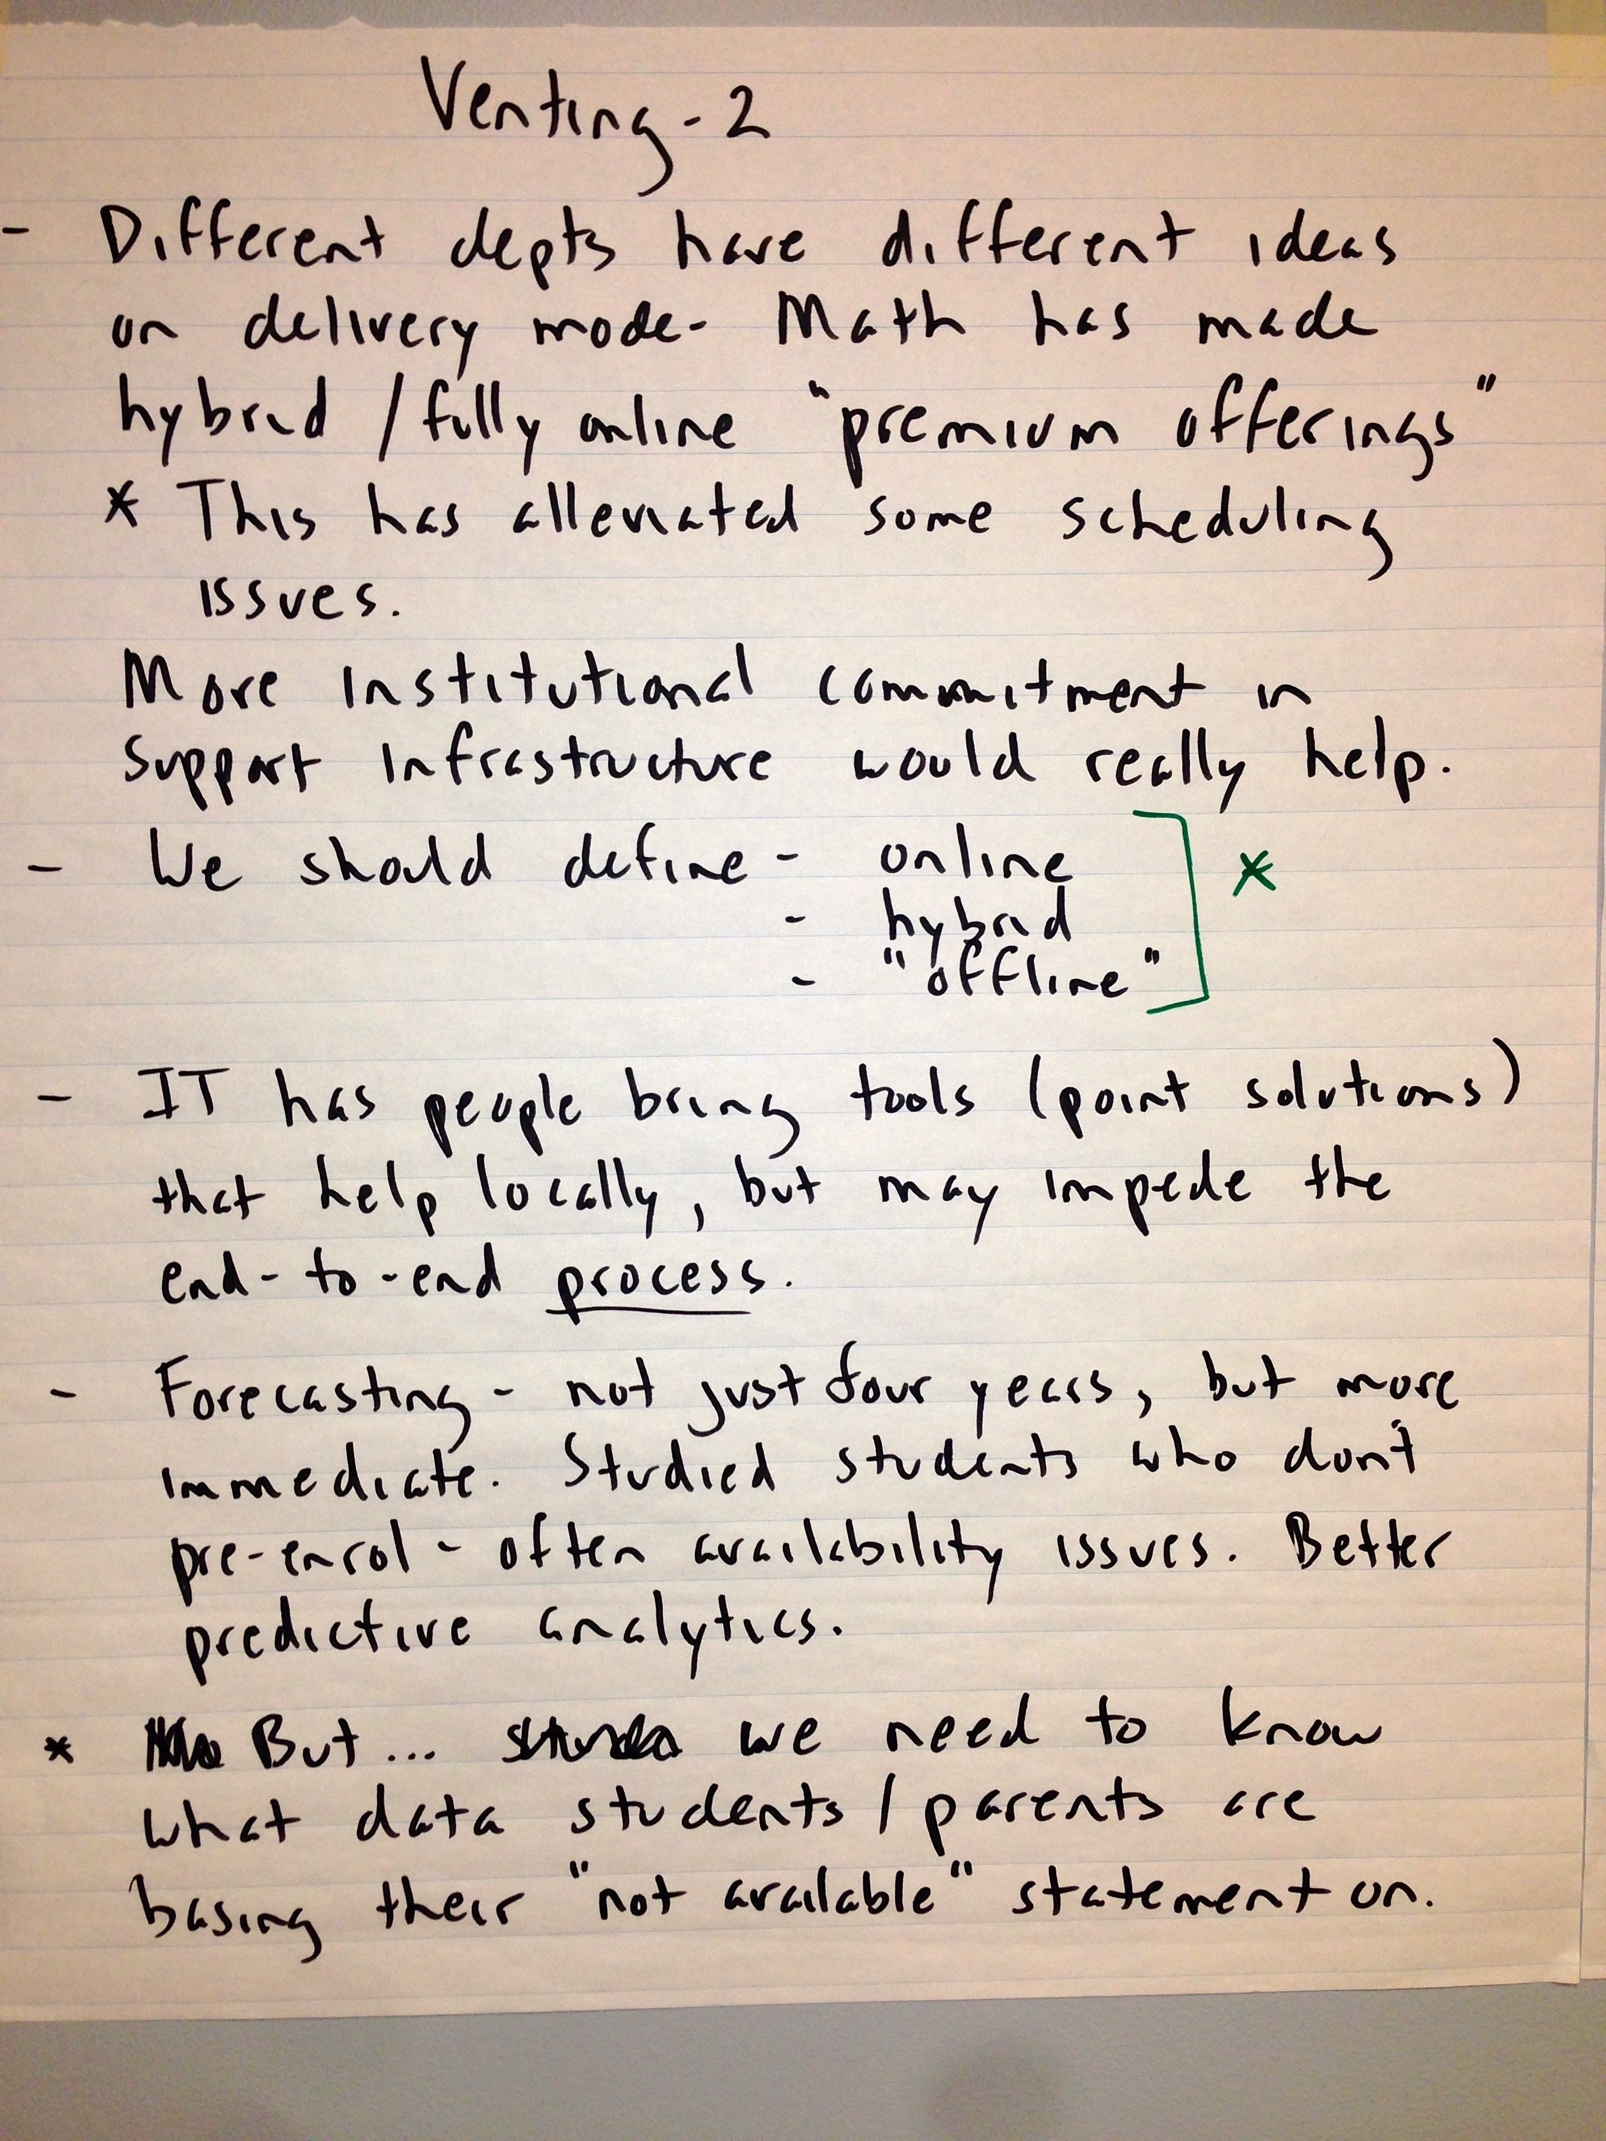 Venting - 2
- Different depts have different ideas
on delivery mode - Math has made
hybrid / fully online "premium offerings"
* This has alleviated some scheduling
issues.
More institutional commitment in
support infrastructure would really help.
- We should define - online ] *
- hybrid
- "offline"
- IT has people bring tools (point solutions)
that help locally, but may impede the
end-to-end process.
- Forecasting - not just four years, but more
immediate. Studied students who don't
pre-enrol - often availability issues. Better
predictive analytics.
* But... we need to know
what data students / parents are
basing their "not available" statement on.